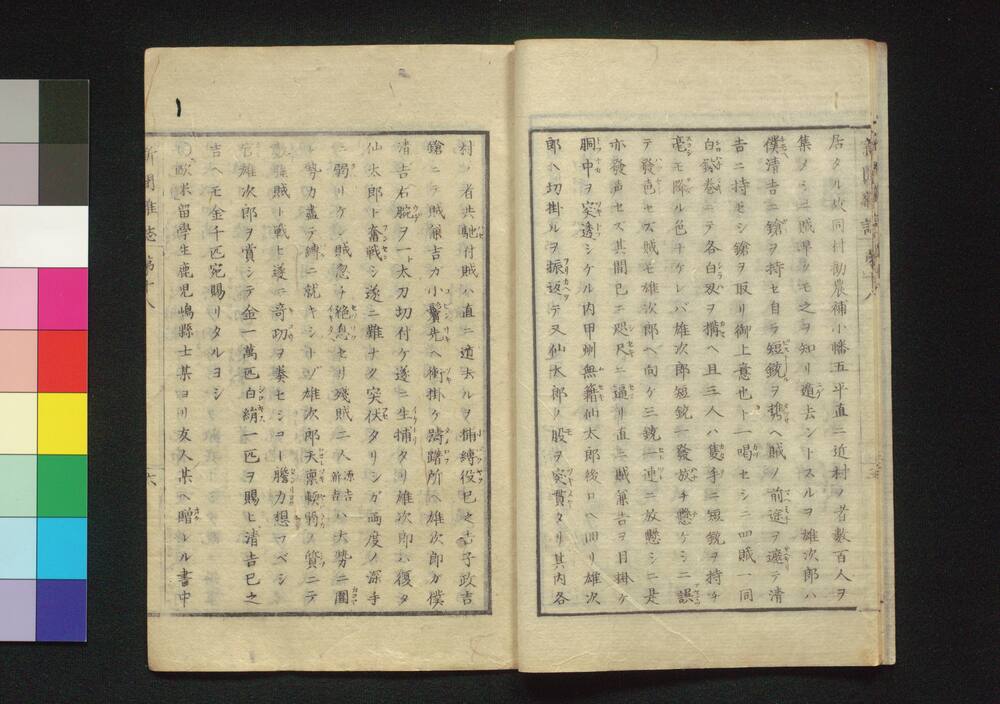 居タル故同村勧農補小幡五平直ニ近村ノ者数百人ヲ
集メシニ賊早クモ之ヲ知リ遁去ントスルヲ雄次郎ハ
僕清吉ニ鎗ヲ持セ自ラ短銃ヲ携ヘ賊ノ前途ヲ遮テ清
吉ニ持セシ鎗ヲ取リ御上意也ト一喝セシニ四賊一同
白鉢巻ニテ各白刄ヲ搆ヘ且三人ハ隻手ニ短銃ヲ持チ
毫モ降ル色ナケレバ雄次郎短銃一發放チ懸ケシニ誤
テ發色セズ賊モ雄次郎ヘ向ケ三銃一連ニ放懸シニ是
亦發声セズ其間已ニ咫尺ニ逼リ直ニ賊兼吉ヲ目掛ケ
胴中ヲ突透シケル内甲州無籍仙太郎後ロヘ回リ雄次
郎ヘ切掛ルヲ振返テ又仙太郎ノ股ヲ突貫タリ其内各
村ノ者共馳付賊ハ直ニ逃去ルヲ捕縛役巳之吉子政吉
鎗ニテ賊兼吉カ小鬢先ヘ衝掛ケ躊躇所ヘ雄次郎カ僕
清吉右腕ヲ一ト太刀切付ケ遂ニ生捕タリ雄次郎ハ復タ
仙太郎ト奮戦シ遂ニ難ナク突伏タリシガ両度ノ深手
ニ弱リケン賊忽チ絶息セリ残賊二人源吉ハ大勢ニ圍
レ勢力盡テ縛ニ就キシトゾ雄次郎天禀軟弱ノ質ニテ
賊ト戦ヒ遂ニ奇功ヲ奏セシコト膽力想フベシ
雄次郎ヲ賞シテ金一萬匹白絹一匹ヲ賜ヒ清吉巳之
吉ヘモ金千匹宛賜リタルヨシ
○欧米留學生鹿児嶋縣士某ヨリ友人某ヘ贈レル書中
新聞雑誌 第十八
六